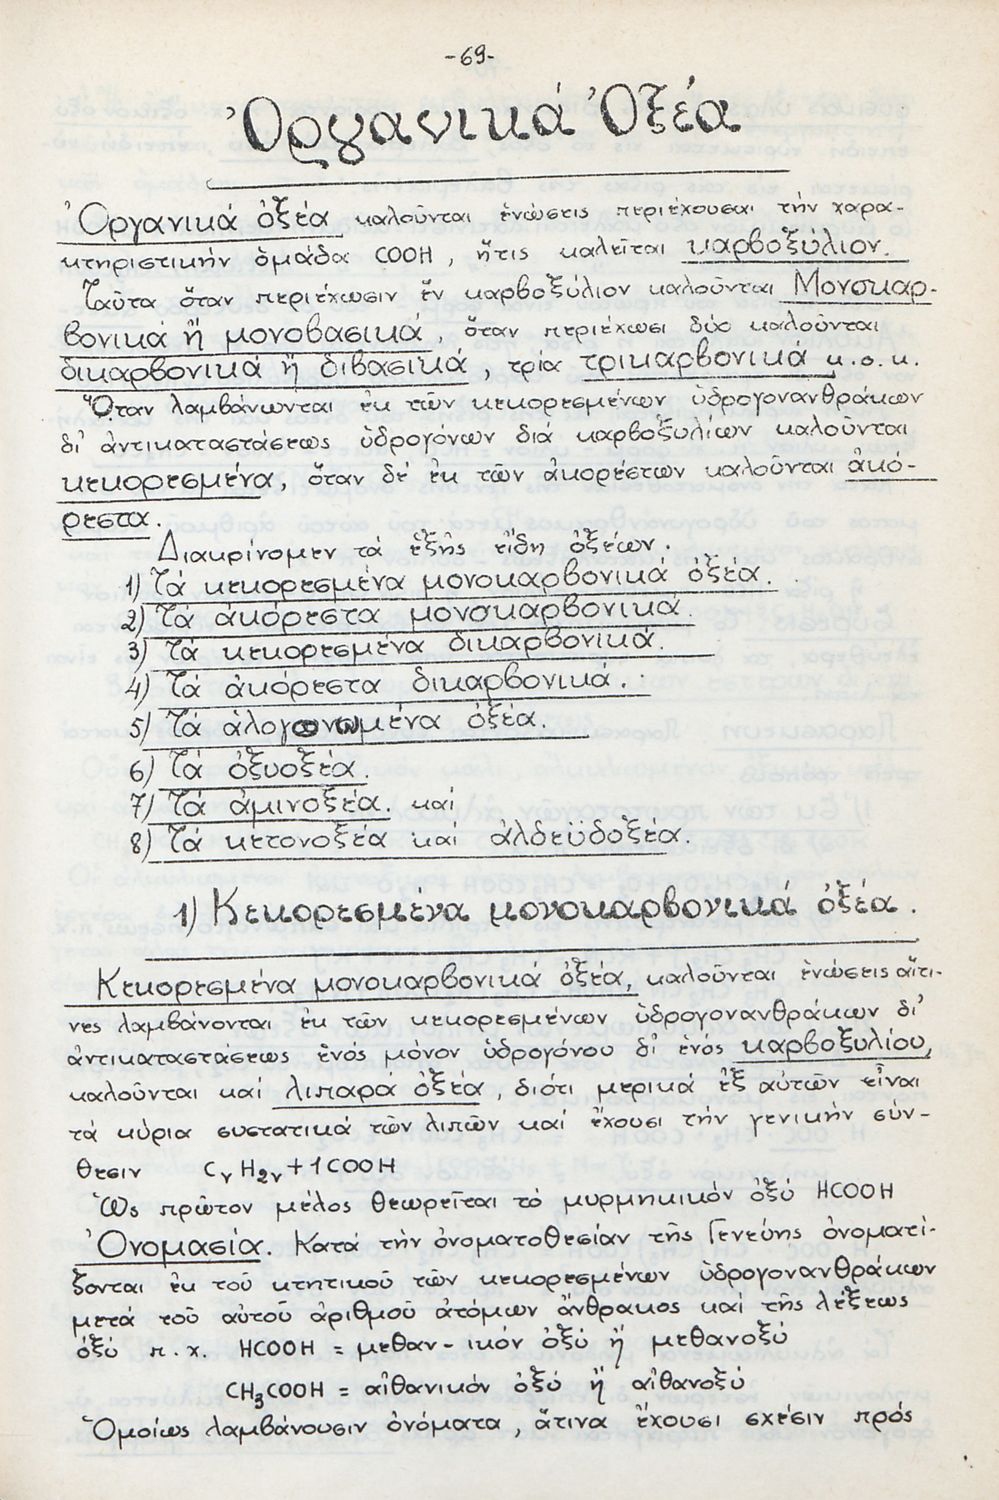 -69-
Ὀργανικά Ὀξέα
Ὀργανικά ὀξέα καλοῦνται ἑνώσεις περιέχουσαι τήν χαρα-
κτηριστικήν ὁμάδα COOH, ἥτις καλεῖται καρβοξύλιον.
Ταῦτα ὅταν περιέχωσιν ἕν καρβοξύλιον καλοῦνται Μονοκαρ-
βονικά ἤ μονοβασικά, ὅταν περιέχωσι δύο καλοῦνται
δικαρβονικά ἤ διβασικά, τρία τρικαρβονικά κ.ο.κ.
Ὅταν λαμβάνωνται ἐκ τῶν κεκορεσμένων ὑδρογονανθράκων
δι' ἀντικαταστάσεως ὑδρογόνων διά καρβοξυλίων καλοῦνται
κεκορεσμένα, ὅταν δέ ἐκ τῶν ἀκορέστων καλοῦνται ἀκό-
ρεστα.
Διακρίνομεν τά ἑξῆς εἴδη ὀξέων.
1) Τά κεκορεσμένα μονοκαρβονικά ὀξέα.
2) Τά ἀκόρεστα μονοκαρβονικά.
3) Τά κεκορεσμένα δικαρβονικά.
4) Τά ἀκόρεστα δικαρβονικά.
5) Τά ἁλογονωμένα ὀξέα.
6) Τά ὀξυοξέα.
7) Τά ἀμινοξέα. καί
8) Τά κετονοξέα καί ἀλδεϋδοξέα.
1) Κεκορεσμένα μονοκαρβονικά ὀξέα.
Κεκορεσμένα μονοκαρβονικά ὀξέα, καλοῦνται ἑνώσεις αἵτι-
νες λαμβάνονται ἐκ τῶν κεκορεσμένων ὑδρογονανθράκων δι'
ἀντικαταστάσεως ἑνός μόνον ὑδρογόνου δι' ἑνός καρβοξυλίου,
καλοῦνται καί λιπαρά ὀξέα, διότι μερικά ἐξ αὐτῶν εἶναι
τά κύρια συστατικά τῶν λιπῶν καί ἔχουσι τήν γενικήν σύν-
θεσιν CνH2ν+1COOH
Ὡς πρῶτον μέλος θεωρεῖται τό μυρμηκικόν ὀξύ HCOOH
Ὀνομασία. Κατά τήν ὀνοματοθεσίαν τῆς Γενεύης ὀνοματί-
ζονται ἐκ τοῦ κτητικοῦ τῶν κεκορεσμένων ὑδρογονανθράκων
μετά τοῦ αὐτοῦ ἀριθμοῦ ἀτόμων ἄνθρακος καί τῆς λέξεως
ὀξύ π.χ. HCOOH = μεθαν-ικόν ὀξύ ἤ μεθανοξύ
CH3COOH = αἰθανικόν ὀξύ ἤ αἰθανοξύ
Ὁμοίως λαμβάνουσιν ὀνόματα, ἅτινα ἔχουσι σχέσιν πρός